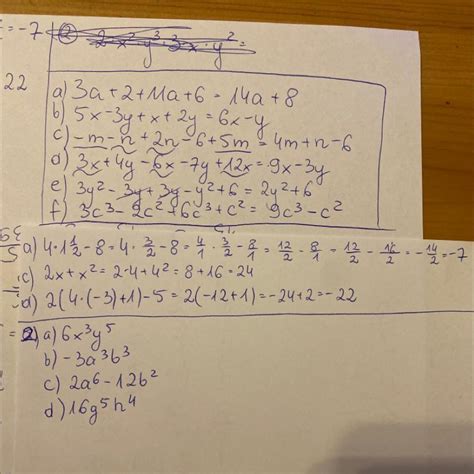 = -7
② 2·x²y³·3x·y² =
22
a) 3a+2+11a+6 = 14a+8
b) 5x-3y+x+2y = 6x-y
c) -m-n+2n-6+5m = 4m+n-6
d) 3x+4y-6x-7y+12x = 9x-3y
e) 3y²-3y+3y-y²+6 = 2y²+6
f) 3c³-2c²+6c³+c² = 9c³-c²
a) 4·1 1/2-8 = 4·3/2-8 = 4/1·3/2-8/1 = 12/2-8/1 = 12/2-16/2 = -14/2 = -7
c) 2x+x² = 2·4+4² = 8+16 = 24
d) 2(4·(-3)+1)-5 = 2(-12+1) = -24+2 = -22
2) a) 6x³y⁵
b) -3a³b³
c) 2a⁶-12b²
d) 16g⁵h⁴